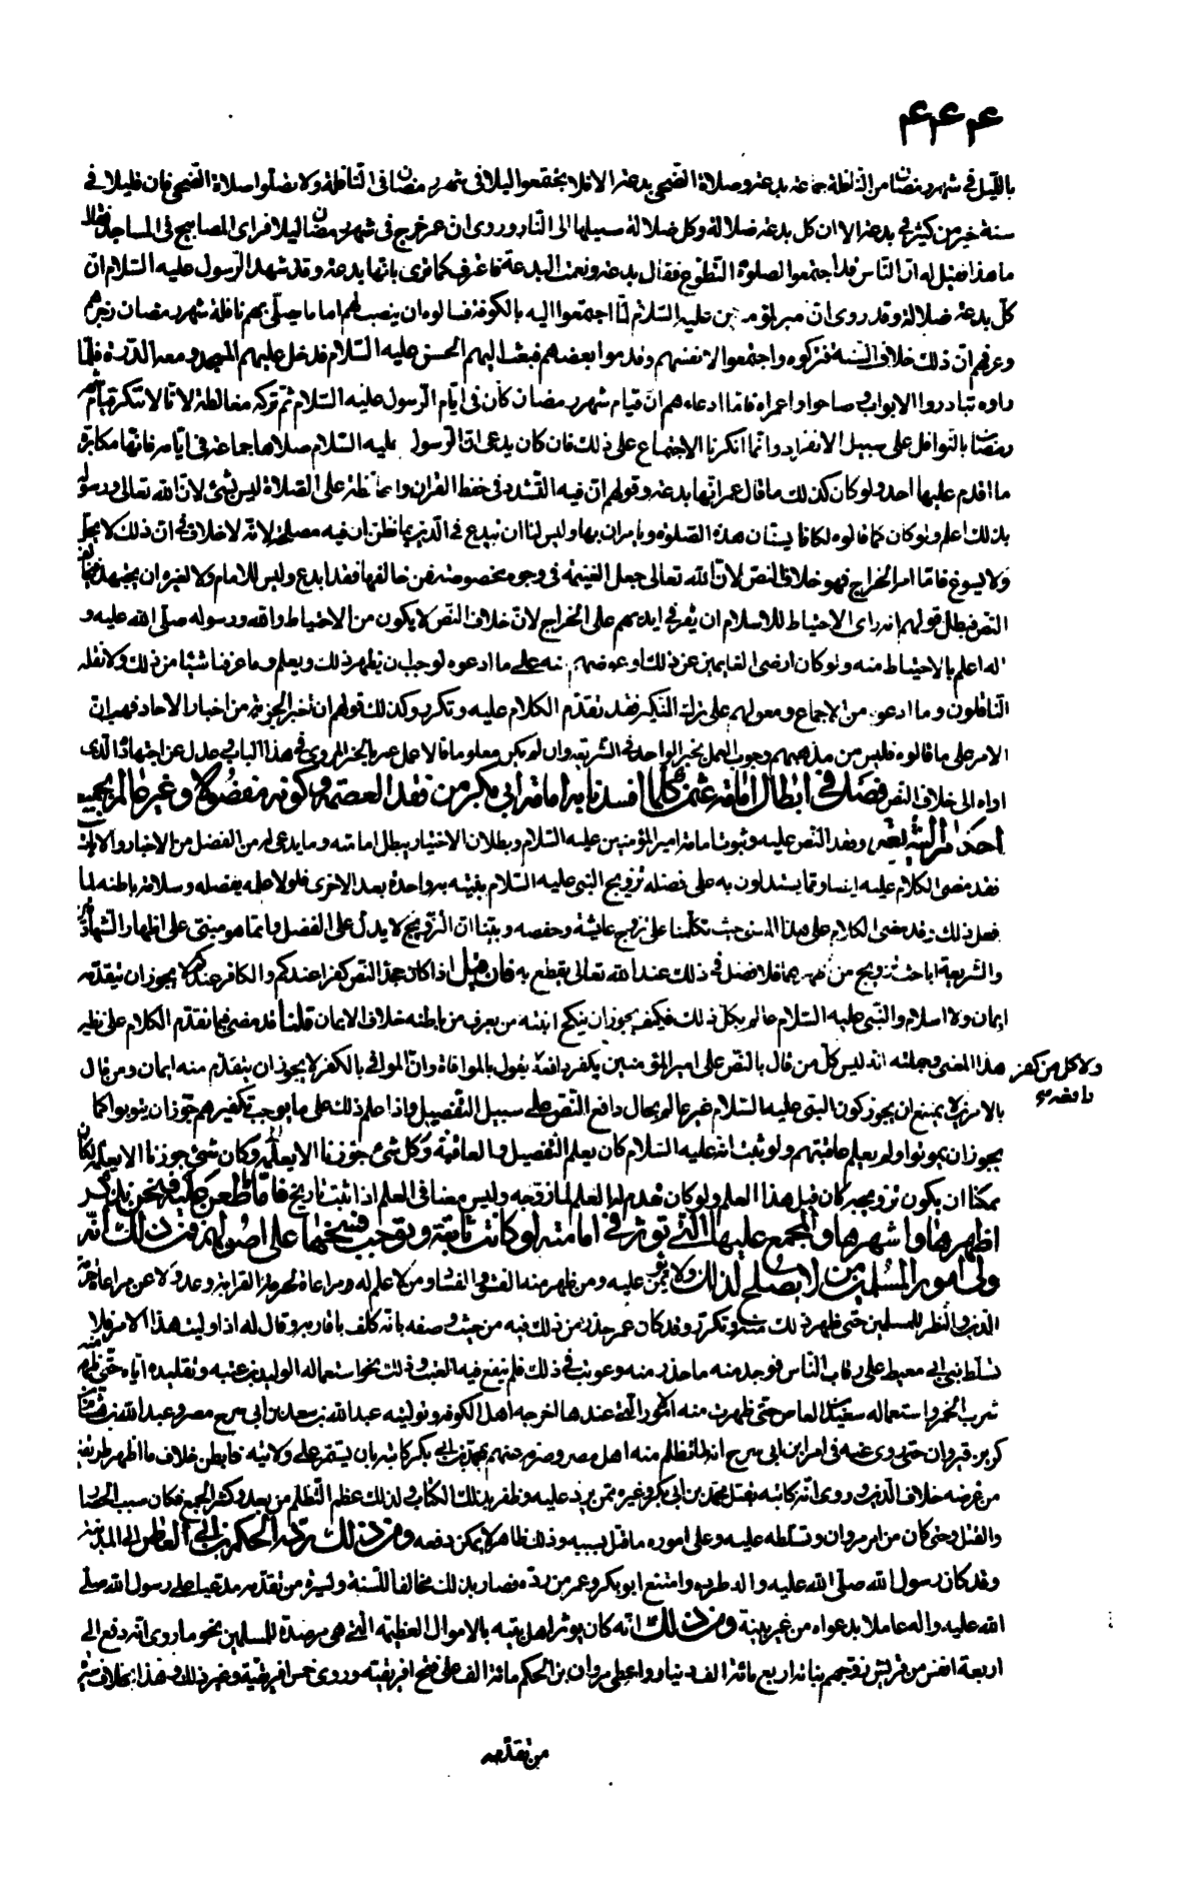 بالليل في شهر رمضان من النافلة جماعة بدعة وصلاة الضحى بدعة الا فلا تجتمعوا ليلا في شهر رمضان في النافلة ولا تصلوا صلاة الضحى فان قليلا في
سنة خير من كثير في بدعة الا ان كل بدعة ضلالة وكل ضلالة سبيلها الى النار وروى ان عمر خرج في شهر رمضان ليلا فراى المصابيح في المساجد فقال
ما هذا فقيل له ان الناس قد اجتمعوا لصلوة التطوع فقال بدعة ونعمت البدعة فاعترف كما ترى بانها بدعة وقد شهد الرسول عليه السلام ان
كل بدعة ضلالة وقد روى ان امير المؤمنين عليه السلام لما اجتمعوا اليه بالكوفة فسالوه ان ينصب لهم اماما يصلي بهم نافلة شهر رمضان زجرهم
وعرفهم ان ذلك خلاف السنة فتركوه واجتمعوا لانفسهم وقدموا بعضهم فبعث اليهم الحسن عليه السلام فدخل عليهم المسجد ومعه الدرة فلما
راوه تبادروا الابواب وصاحوا واعمراه فاما ادعاءهم ان قيام شهر رمضان كان في ايام الرسول عليه السلام ثم تركه مغالطة لانا لا ننكر قيام شهر
رمضان بالنوافل على سبيل الانفراد وانما انكرنا الاجتماع على ذلك فان كان يدعى ان الرسول عليه السلام صلاها جماعة في ايامه فانها مكابرة
ما اقدم عليها احد ولو كان كذلك ما قال عمر انها بدعة وقولهم ان فيه التشدد في حفظ القران والمحافظة على الصلاة ليس بشئ لان الله تعالى ورسوله
بذلك اعلم ولو كان كما قالوه لكانا يسنان هذه الصلوة ويامران بها وليس لنا ان نبدع في الدين بما نظن ان فيه مصلحة لانه لا خلاف في ان ذلك لا يحل
ولا يسوغ فاما امر الخراج فهو خلاف النص لان الله تعالى جعل الغنيمة في وجوه مخصوصة فمن خالفها فقد ابدع وليس للامام ولا لغيره ان يجتهد فيخالف
النص فبطل قولهم انه راى الاحتياط للاسلام ان يقر في ايديهم على الخراج لان خلاف النص لا يكون من الاحتياط والله ورسوله صلى الله عليه و
اله اعلم بالاحتياط منه ولو كان ارضى الغانمين عن ذلك او عوضهم منه على ما ادعوه لوجب ان يظهر ذلك ويعلم وما عرفنا شيئا من ذلك ولا نقله
الناقلون وما ادعوه من الاجماع ومعولهم على ترك النكير فقد تقدم الكلام عليه وتكرر وكذلك قولهم ان خبر الجزية من اخبار الاحاد فهب ان
الامر على ما قالوه فليس من مذهبهم وجوب العمل بخبر الواحد في الشريعة وان لم يكن معلوما فالا عمل عمر بالخبر المروي في هذا الباب وعدل عن اجتهاده الذي
اداه الى خلاف النص فصل في ابطال امامة عثمن كلما افسدنا به امامة ابي بكر من فقد العصمة وكونه مفضولا وغير عالم بجميع
احكام الشريعة وفقد النص عليه وثبوت امامة امير المؤمنين عليه السلام وبطلان الاختيار يبطل امامته وما يدعى له من الفضل من الاخبار والايات
فقد مضى الكلام عليه ايضا ومما يستدلون به على فضله تزويج النبي عليه السلام بنتيه به واحدة بعد الاخرى فلولا علمه بفضله وسلامة باطنه لما
فعل ذلك وقد مضى الكلام على هذا المعنى حيث تكلمنا على تزويج عايشة وحفصه وبينا ان التزويج لا يدل على الفضل وانما هو مبني على اظهار الشهادتين
والشريعة اباحت تزويج من ظهر بهما فلا فضل في ذلك عند الله تعالى يقطع به فان قيل اذا كان جحد النص كفرا عندكم والكافر عندكم لا يجوز ان يتقدمه
ايمان ولا اسلام والنبي عليه السلام عالم بكل ذلك فكيف يجوز ان ينكح ابنته من يعرف من باطنه خلاف الايمان قلنا قد مضى فيما تقدم الكلام على نظير
هذا المعنى وجملته انه ليس كل من قال بالنص على امير المؤمنين يكفر دافعه يقول بالموافاة وان الموافي بالكفر لا يجوز ان يتقدم منه ايمان ومن قال
ولا كل من كفر
دافعه
بالامرين لا يمتنع ان يجوز كون النبي عليه السلام غير عالم بحال دافع النص على سبيل التفصيل واذا علم ذلك على ما يوجب تكفيرهم جوز ان يتوبوا كما
يجوز ان يموتوا ولم يعلم عاقبتهم ولو ثبت انه عليه السلام كان يعلم التفصيل والعاقبة وكل شئ جوزنا الا يعلمه وكان شئ جوزنا الا يعلمه لكان
ممكنا ان يكون تزويجه كان قبل هذا العلم ولو كان تقدم له العلم لما زوجه وليس معنا في العلم اذا ثبت تاريخ فاما مطاعن عليه فنحن نذكر
اظهرها واشهرها والمجمع عليها التي تؤثر في امامته لو كانت ثابتة وتوجب فسخها على اصولهم فمن ذلك انه
ولى امور المسلمين من لا يصلح لذلك ولا يؤتمن عليه ومن ظهر منه الفسق والفساد ومن لا علم له ومراعاة لحرمة القرابة وعدولا عن مراعاة حرمة
الدين والنظر للمسلمين حتى ظهر ذلك منه وتكرر وقد كان عمر حذره من ذلك فيه من حيث وصفه بانه كلف باقاربه وقال له اذا وليت هذا الامر فلا
تسلط بني ابي معيط على رقاب الناس فوجد منه ما حذره منه وعوتب في ذلك فلم ينفع فيه العتب وذلك نحو استعماله الوليد بن عقبة وتقليده اياه حتى ظهر منه
شرب الخمر واستعماله سعيد بن العاص حتى ظهرت منه الامور التي عندها اخرجه اهل الكوفة وتوليته عبدالله بن سعد بن ابي سرح مصر وعبدالله بن عامر بن
كريز حتى روى عنه في امر ابن ابي سرح انه لما تظلم منه اهل مصر وصرفه عنهم بمحمد بن ابي بكر كاتبه بان يستقر على ولايته فابطن خلاف ما اظهر طريقة
من غرضه خلاف الدين وروى انه كاتبه بقتل محمد بن ابي بكر وغيره ممن يرد عليه وظفر بذلك الكتاب ولذلك عظم التظلم من بعد وكثر الجمع فكان سبب الحصار
والقتل وحتى كان من امر مروان وتسلطه عليه وعلى اموره ما قتل بسببه وذلك ظاهر لا يمكن دفعه ومن ذلك رده الحكم بن ابي العاص الى المدينة
وقد كان رسول الله صلى الله عليه واله طرده وامتنع ابو بكر وعمر من رده فصار بذلك مخالفا للسنة ولسيرة من تقدمه مدعيا على رسول الله صلى
الله عليه واله عاملا بدعواه من غير بينة ومن ذلك انه كان يؤثر اهل بيته بالاموال العظيمة التي هي مرصدة للمسلمين نحو ما روى انه دفع الى
اربعة انفس من قريش زوجهم بناته اربع مائة الف دينار واعطى مروان بن الحكم مائة الف على فتح افريقية وروى خمس افريقية وغير ذلك وهذا بخلاف سيرة
من تقدمه